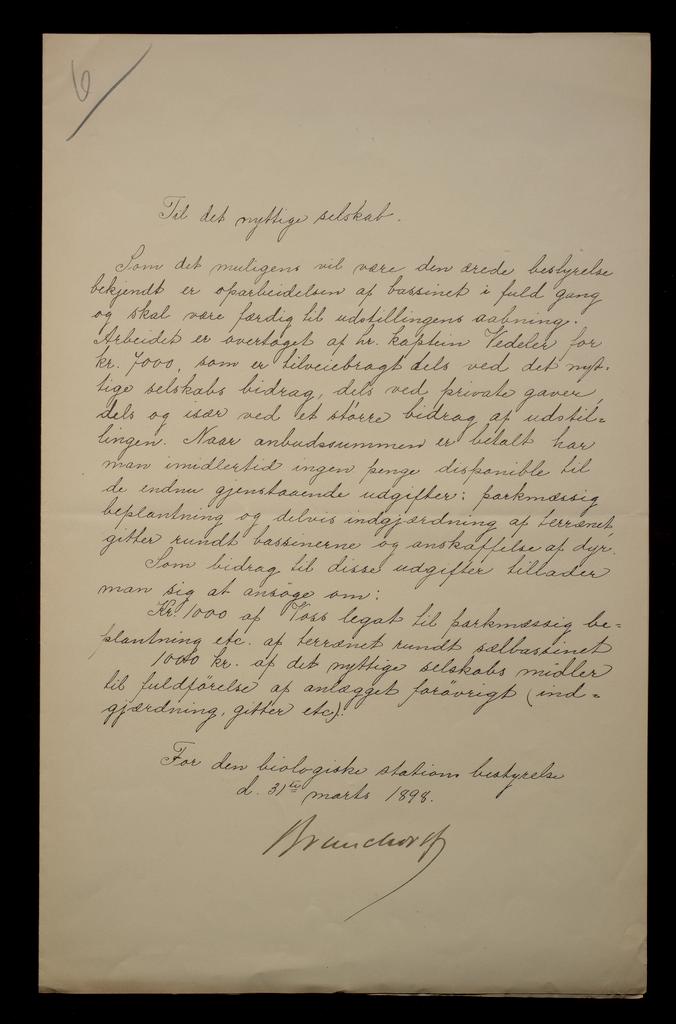 6
Til det nyttige selskab.
Som det muligens vil være den ærede bestyrelse
bekjendt er oparbeidelsen af bassinet i fuld gang
og skal være færdig til udstillingens aabning.
Arbeidet er overtaget af hr. kaptein Vedeler for
kr. 7000, som er tilveiebragt dels ved det nyt-
tige selskabs bidrag, dels ved private gaver,
dels og især ved et större bidrag af udstil=
lingen. Naar anbudssummen er betalt har
man imidlertid ingen penge disponible til
de endnu gjenstaaende udgifter: parkmæssig
beplantning og delvis indgjærdning af terrænet,
gitter rundt bassinerne og anskaffelse af dyr.
Som bidrag til disse udgifter tillader
man sig at ansöge om:
Kr. 1000 af Voss legat til parkmæssig be=
plantning etc. af terrænet rundt sælbassinet
1000 kr. af det nyttige selskabs midler
til fuldförelse af anlægget forövrigt (ind=
gjærdning, gitter etc).
For den biologiske stations bestyrelse
d. 31te marts 1898.
Brunchorst